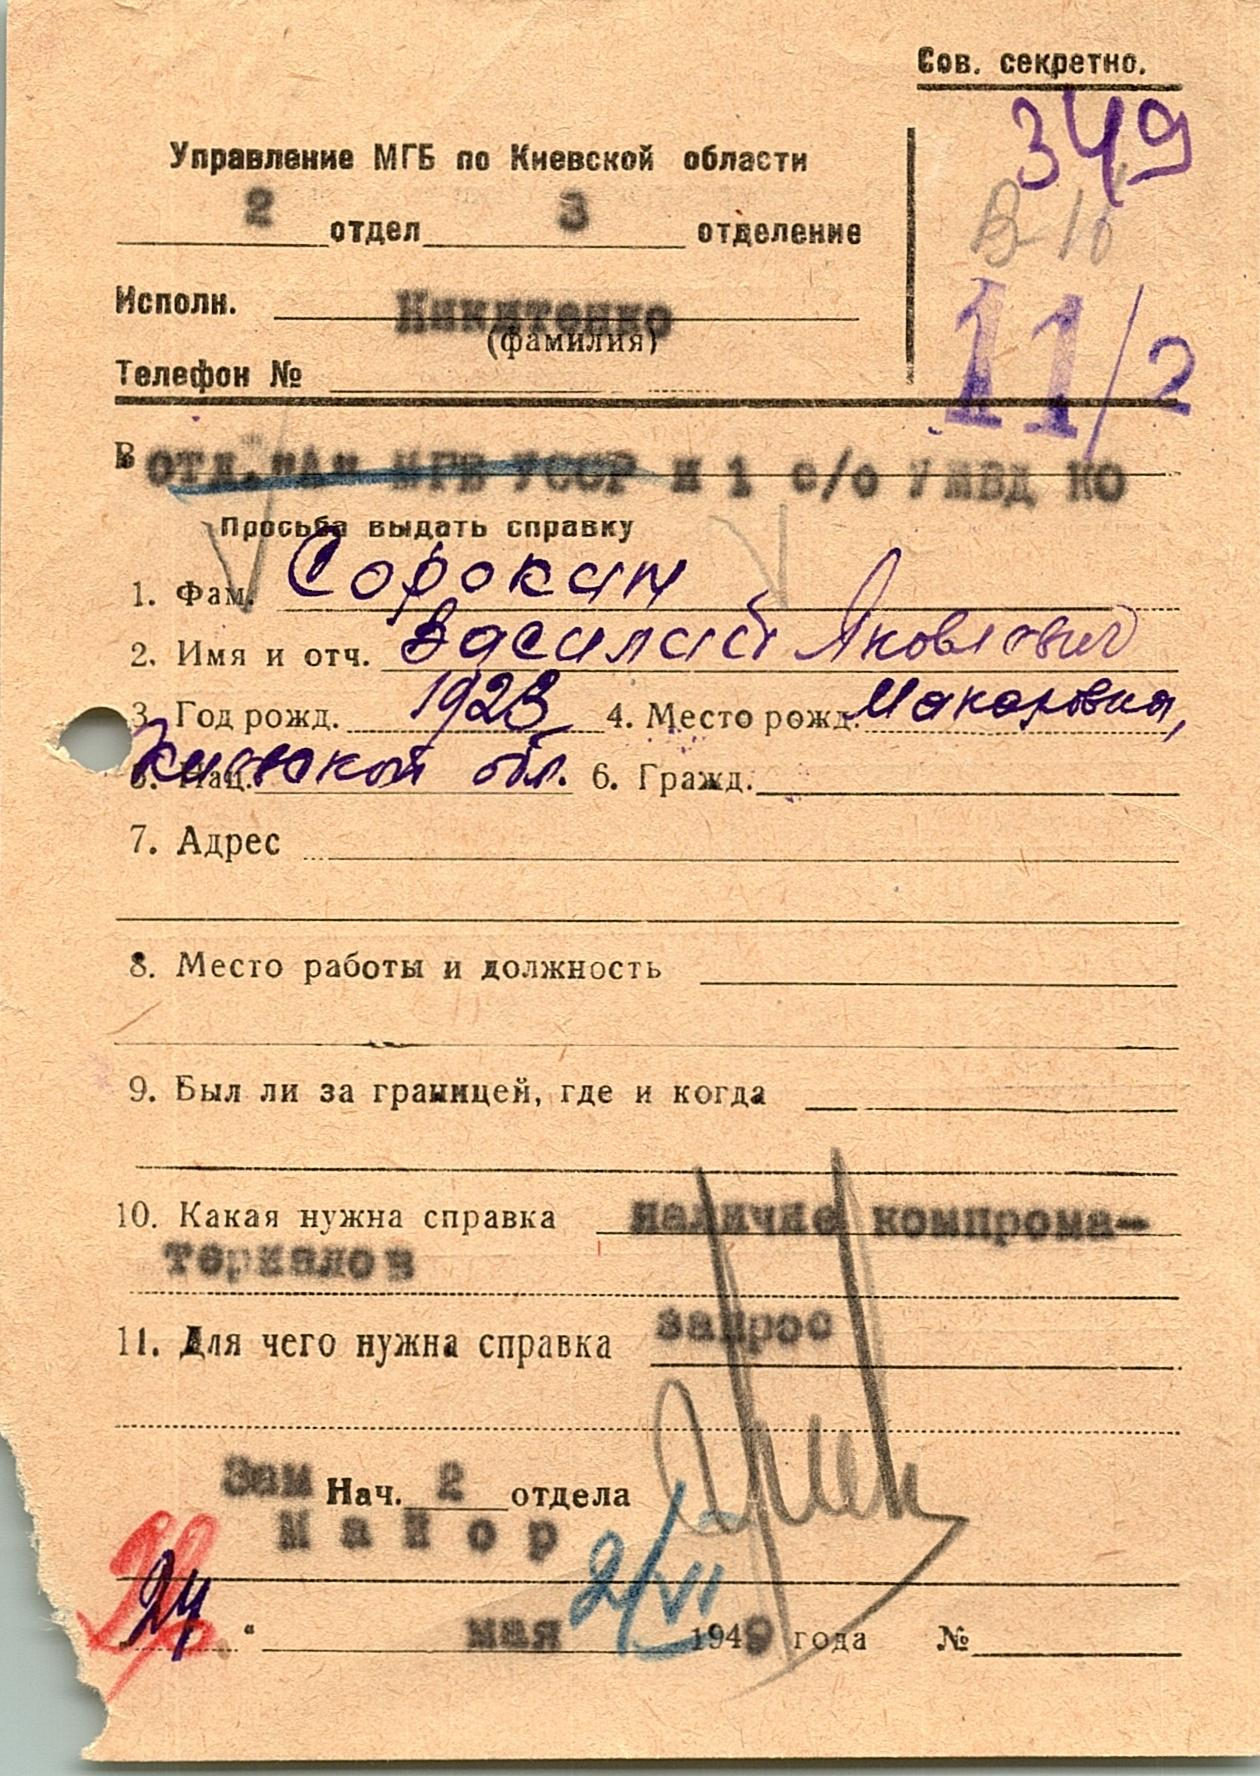 Сов. секретно.
349
В-10
11/2
Управление МГБ по Киевской области
2 отдел 3 отделение
Исполн. Никитенко
(фамилия)
Телефон №
В отд. "А" МГБ УССР и 1 с/о УМВД КО
Просьба выдать справку
1. Фам. Сорокин
2. Имя и отч. Василий Яковлевич
3. Год рожд. 1923 4. Место рожд. Макаровка,
Киевской обл.
5. Нац. 6. Гражд.
7. Адрес
8. Место работы и должность
9. Был ли за границей, где и когда
10. Какая нужна справка наличие компрома-
териалов
11. Для чего нужна справка запрос
Зам Нач. 2 отдела
Майор
2/VI
24 " мая 1949 года №